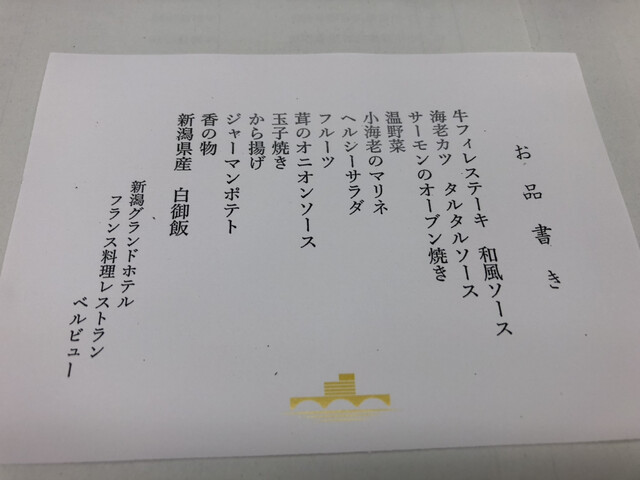 お品書き
牛フィレステーキ　和風ソース
海老カツ　タルタルソース
サーモンのオーブン焼き
温野菜
小海老のマリネ
ヘルシーサラダ
フルーツ
茸のオニオンソース
玉子焼き
から揚げ
ジャーマンポテト
香の物
新潟県産　白御飯
新潟グランドホテル
フランス料理レストラン
ベルビュー